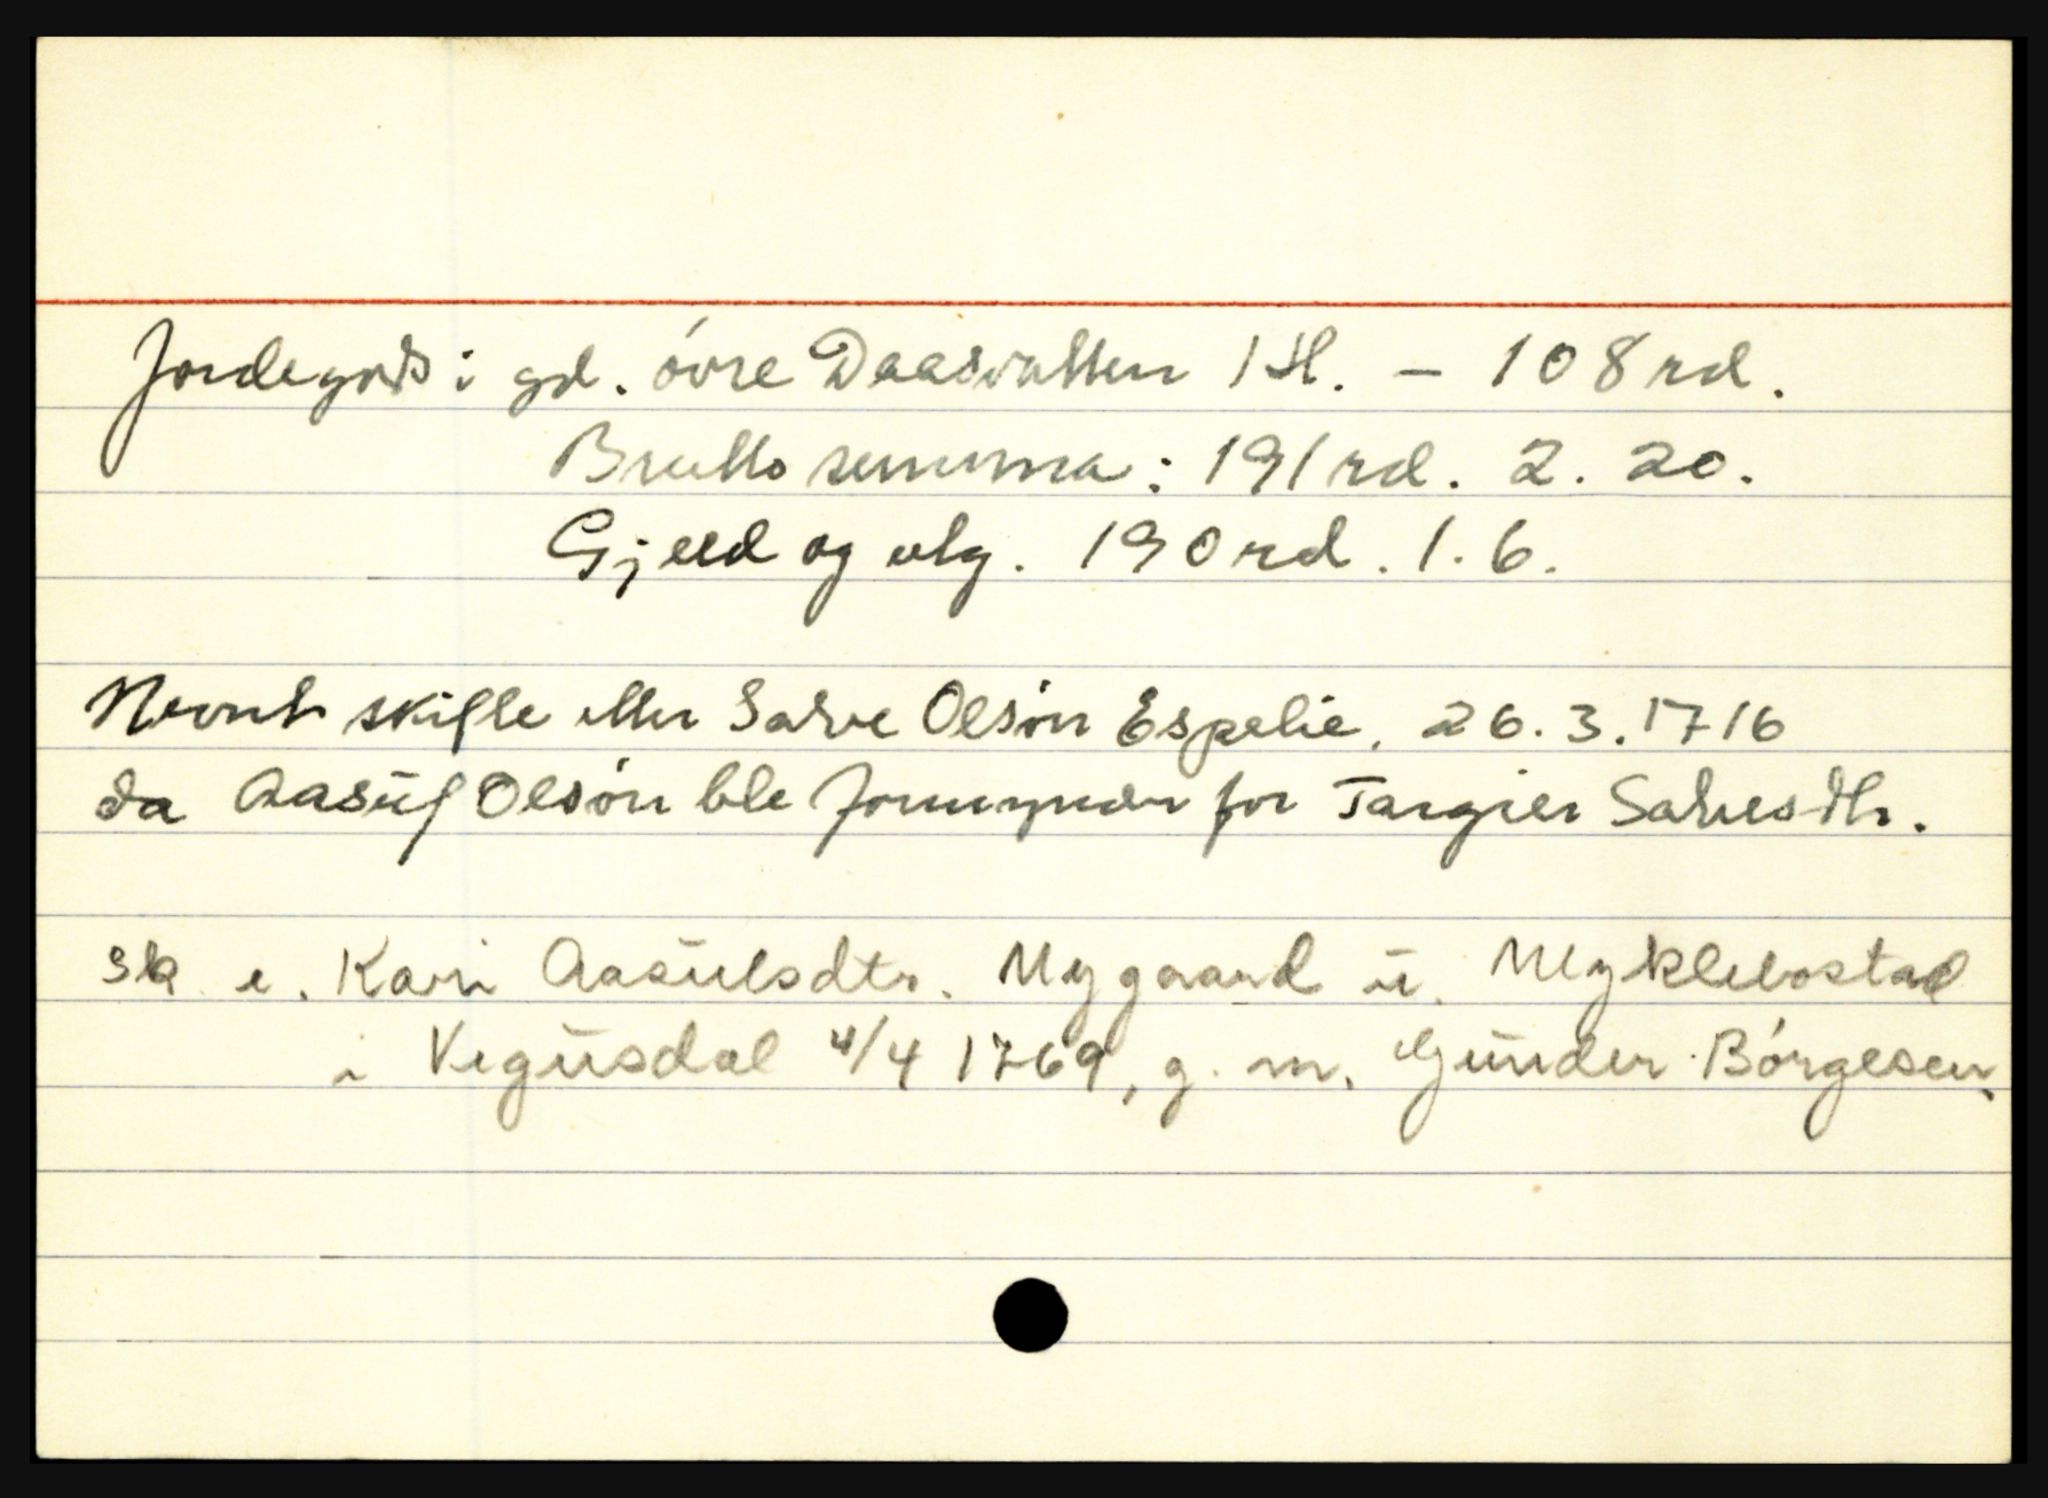 Jordegods i gd. óvre Daasvatten 1 H. - 108 rd.
Brutto summa: 191 rd. 2. 20.
Gjeld og utg. 190 rd. 1. 6.
Nevnt skifte etter Salve Olsón Espelie, 26.3.1716
da Aasŭl Olsón ble formynder for Targier Salvesdtr.
sk e. Kari Aasŭlsdtr. Nygaard ŭ. Myklebostad
i Vegŭsdal 4/4 1769, g. m. Gŭnder Börgesen,